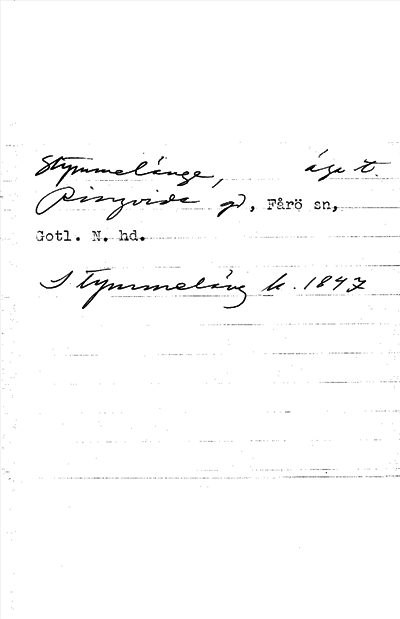 Stymmelänge, äga t.
Ringvide gd, Fårö sn,
Gotl. N. hd.
Stymmeläng k. 1847